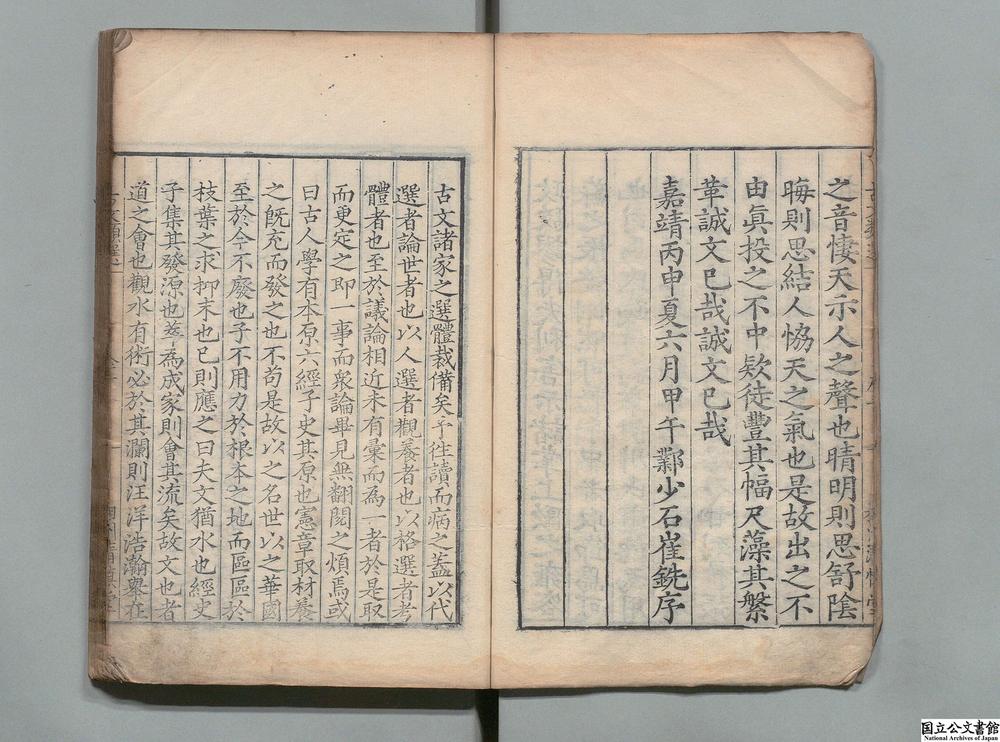 之音悽天示人之聲也晴明則思舒陰
晦則思結人恊天之氣也是故出之不
由眞投之不中欵徒豐其幅尺藻其鞶
革誠文已哉誠文已哉
嘉靖丙申夏六月甲午鄴少石崔銑序
古文諸家之選體裁備矣予徃讀而病之蓋以代
選者論世者也以人選者觀養者也以格選者考
體者也至於議論相近未有彙而為一者於是取
而更定之即一事而衆論畢見無翻閱之煩焉或
曰古人學有本原六經子史其原也憲章取材養
之旣充而發之也不茍是故以之名世以之華國
至於今不廢也子不用力於根本之地而區區於
枝葉之求抑末也已則應之曰夫文猶水也經史
子集其發源也萃為成家則會其流矣故文也者
道之會也觀水有術必於其瀾則汪洋浩瀚舉在
国立公文書館
National Archives of Japan